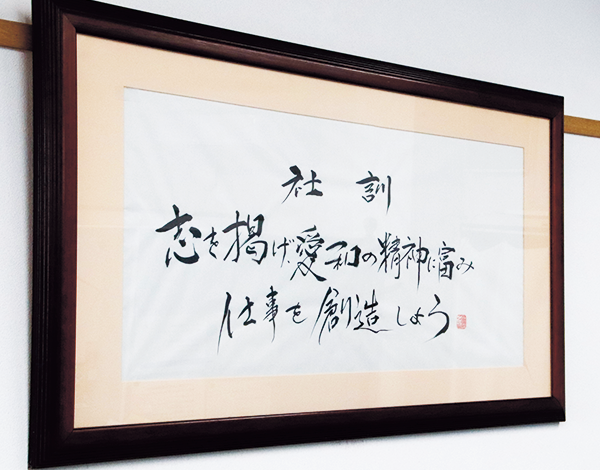 社訓
志を掲げ愛和の精神に富み
仕事を創造しよう